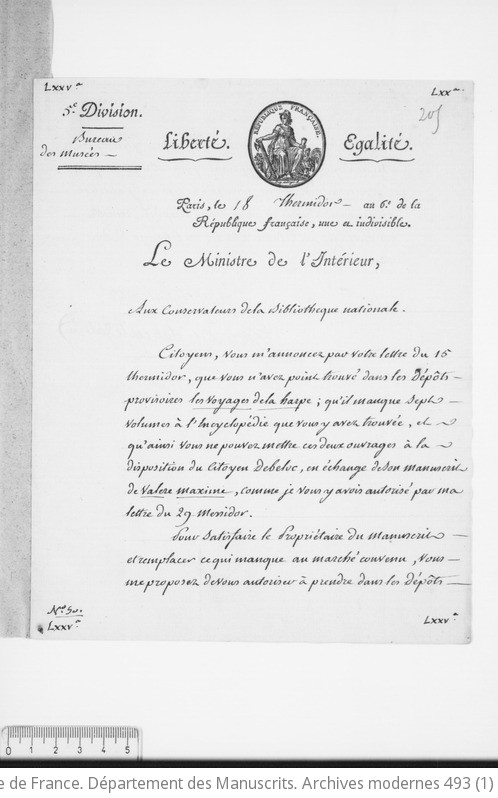 Lxxv.ª
Lxx.
205
5.e Division.
Bureau
des Musées
RÉPUBLIQUE FRANÇAISE.
Liberté. Egalité.
Paris, le 18 thermidor - an 6.e de la
République française, une et indivisible.
Le Ministre de l'Intérieur,
Aux Conservateurs de la Bibliotheque nationale.
Citoyens, vous m'annoncez par votre lettre du 15
thermidor, que vous n'avez point trouvé dans les Dépôts -
provisoires les voyages de la harpe ; qu'il manque Sept -
volumes à l'Encyclopédie que vous y avez trouvée, et ~
qu'ainsi vous ne pouvez mettre ces deux ouvrages à la ~
disposition du Citoyen Debeluc, en échange de Son manuscrit
de Valere maxime, comme je vous y avois autorisé par ma
lettre du 29 Messidor.
Pour Satisfaire le Propriétaire du Manuscrit -
et remplacer ce qui manque au marché convenu, Vous -
me proposez de vous autoriser à prendre dans les Dépôts -
N.º 50.
Lxxv.ª
Lxxv.ª
0 1 2 3 4 5
e de France. Département des Manuscrits. Archives modernes 493 (1)